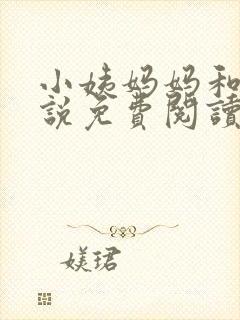 小姨妈妈和
說免費閱讀
媄珺